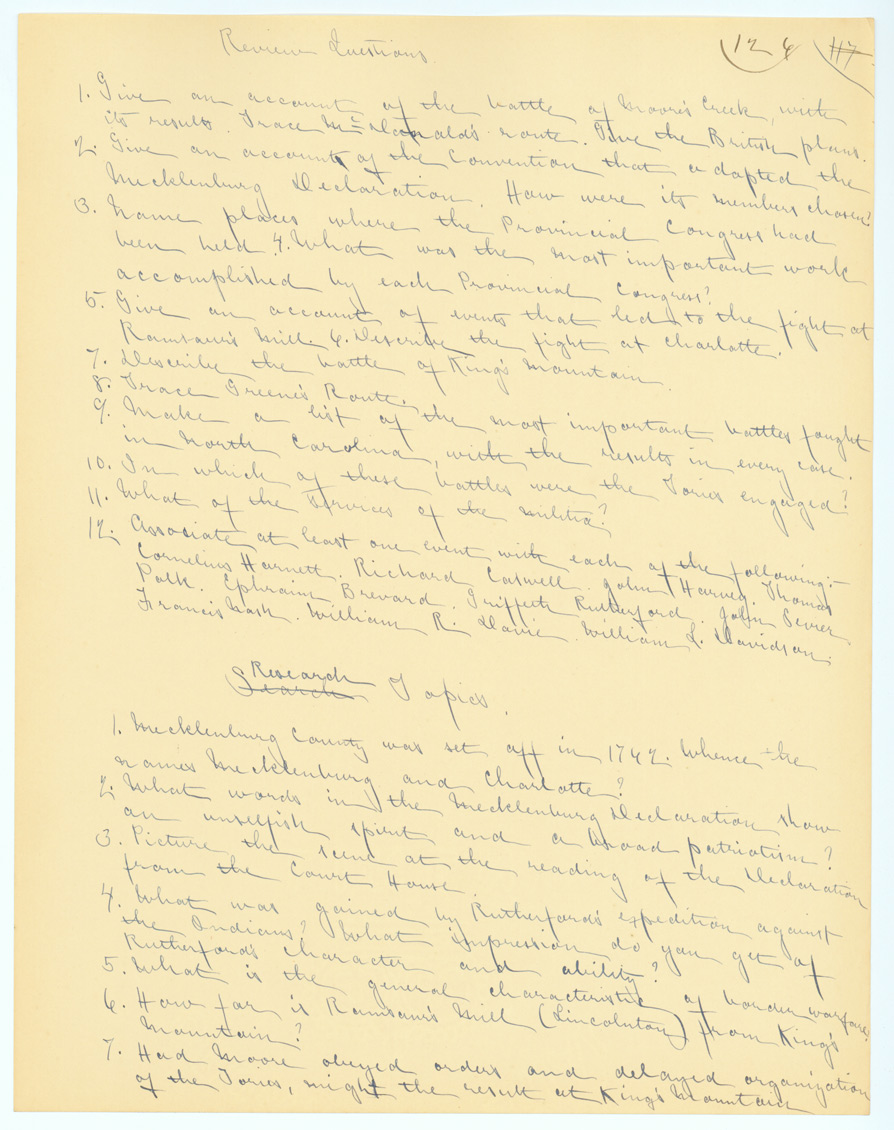 Review Questions.
126 117
1. Give an account of the battle of Moore's Creek, with
its results. Trace McDonald's route. Give the British plans.
2. Give an account of the Convention that adopted the
Mecklenburg Declaration. How were its members chosen?
3. Name places where the Provincial Congress had
been held. 4. What was the most important work
accomplished by each Provincial Congress?
5. Give an account of events that led to the fight at
Ramsaur's Mill. 6. Describe the fight at Charlotte.
7. Describe the battle of King's Mountain.
8. Trace Greene's Route.
9. Make a list of the most important battles fought
in North Carolina, with the results in every case.
10. In which of these battles were the Tories engaged?
11. What of the services of the militia?
12. Associate at least one event with each of the following:-
Cornelius Harnett. Richard Caswell. John Harvey. Thomas
Polk. Ephraim Brevard. Griffith Rutherford. John Sevier.
Francis Nash. William R. Davie. William L. Davidson.
Research
Search Topics.
1. Mecklenburg County was set off in 1742. Whence the
names Mecklenburg and Charlotte?
2. What words in the Mecklenburg Declaration show
an unselfish spirit and a broad patriotism?
3. Picture the scene at the reading of the Declaration
from the Court House.
4. What was gained by Rutherford's expedition against
the Indians? What impression do you get of
Rutherford's character and ability?
5. What is the general characteristic of border warfare?
6. How far is Ramsaur's Mill (Lincolnton) from King's
Mountain?
7. Had Moore obeyed orders and delayed organization
of the Tories, might the result at King's Mountain